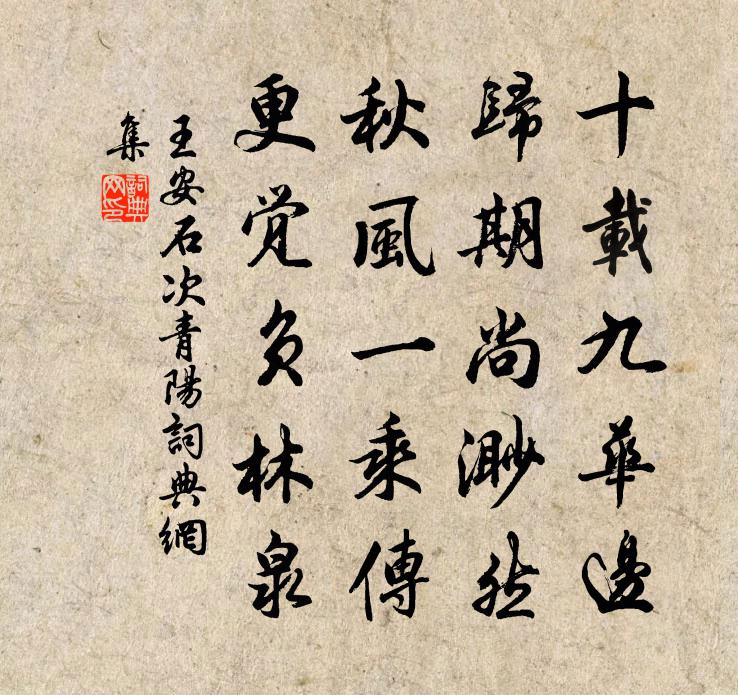 十載九華邊
歸期尚渺然
秋風一乘傳
更覺負林泉
王安石次青陽詞典網
集
詞典
网印